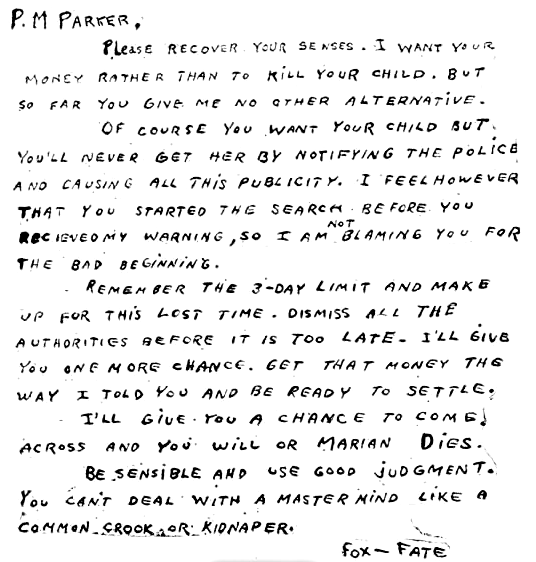 P. M PARKER,
PLease RECOVER YOUR SENSES. I WANT YOUR
MONEY RATHER THAN TO KILL YOUR CHILD. BUT
SO FAR YOU GIVE ME NO OTHER ALTERNATIVE.
OF COURSE YOU WANT YOUR CHILD BUT
YOU'LL NEVER GET HER BY NOTIFYING THE POLICE
AND CAUSING ALL THIS PUBLICITY. I FEEL HOWEVER
THAT YOU STARTED THE SEARCH BEFORE YOU
RECIEVED MY WARNING, SO I AM NOT BLAMING YOU FOR
THE BAD BEGINNING.
REMEMBER THE 3-DAY LIMIT AND MAKE
UP FOR THIS LOST TIME. DISMISS ALL THE
AUTHORITIES BEFORE IT IS TOO LATE. I'LL GIVE
YOU ONE MORE CHANCE. GET THAT MONEY THE
WAY I TOLD YOU AND BE READY TO SETTLE.
I'LL GIVE YOU A CHANCE TO COME
ACROSS AND YOU WILL OR MARIAN DIES.
BE SENSIBLE AND USE GOOD JUDGMENT.
YOU CAN'T DEAL WITH A MASTER MIND LIKE A
COMMON CROOK OR KIDNAPER.
FOX-FATE